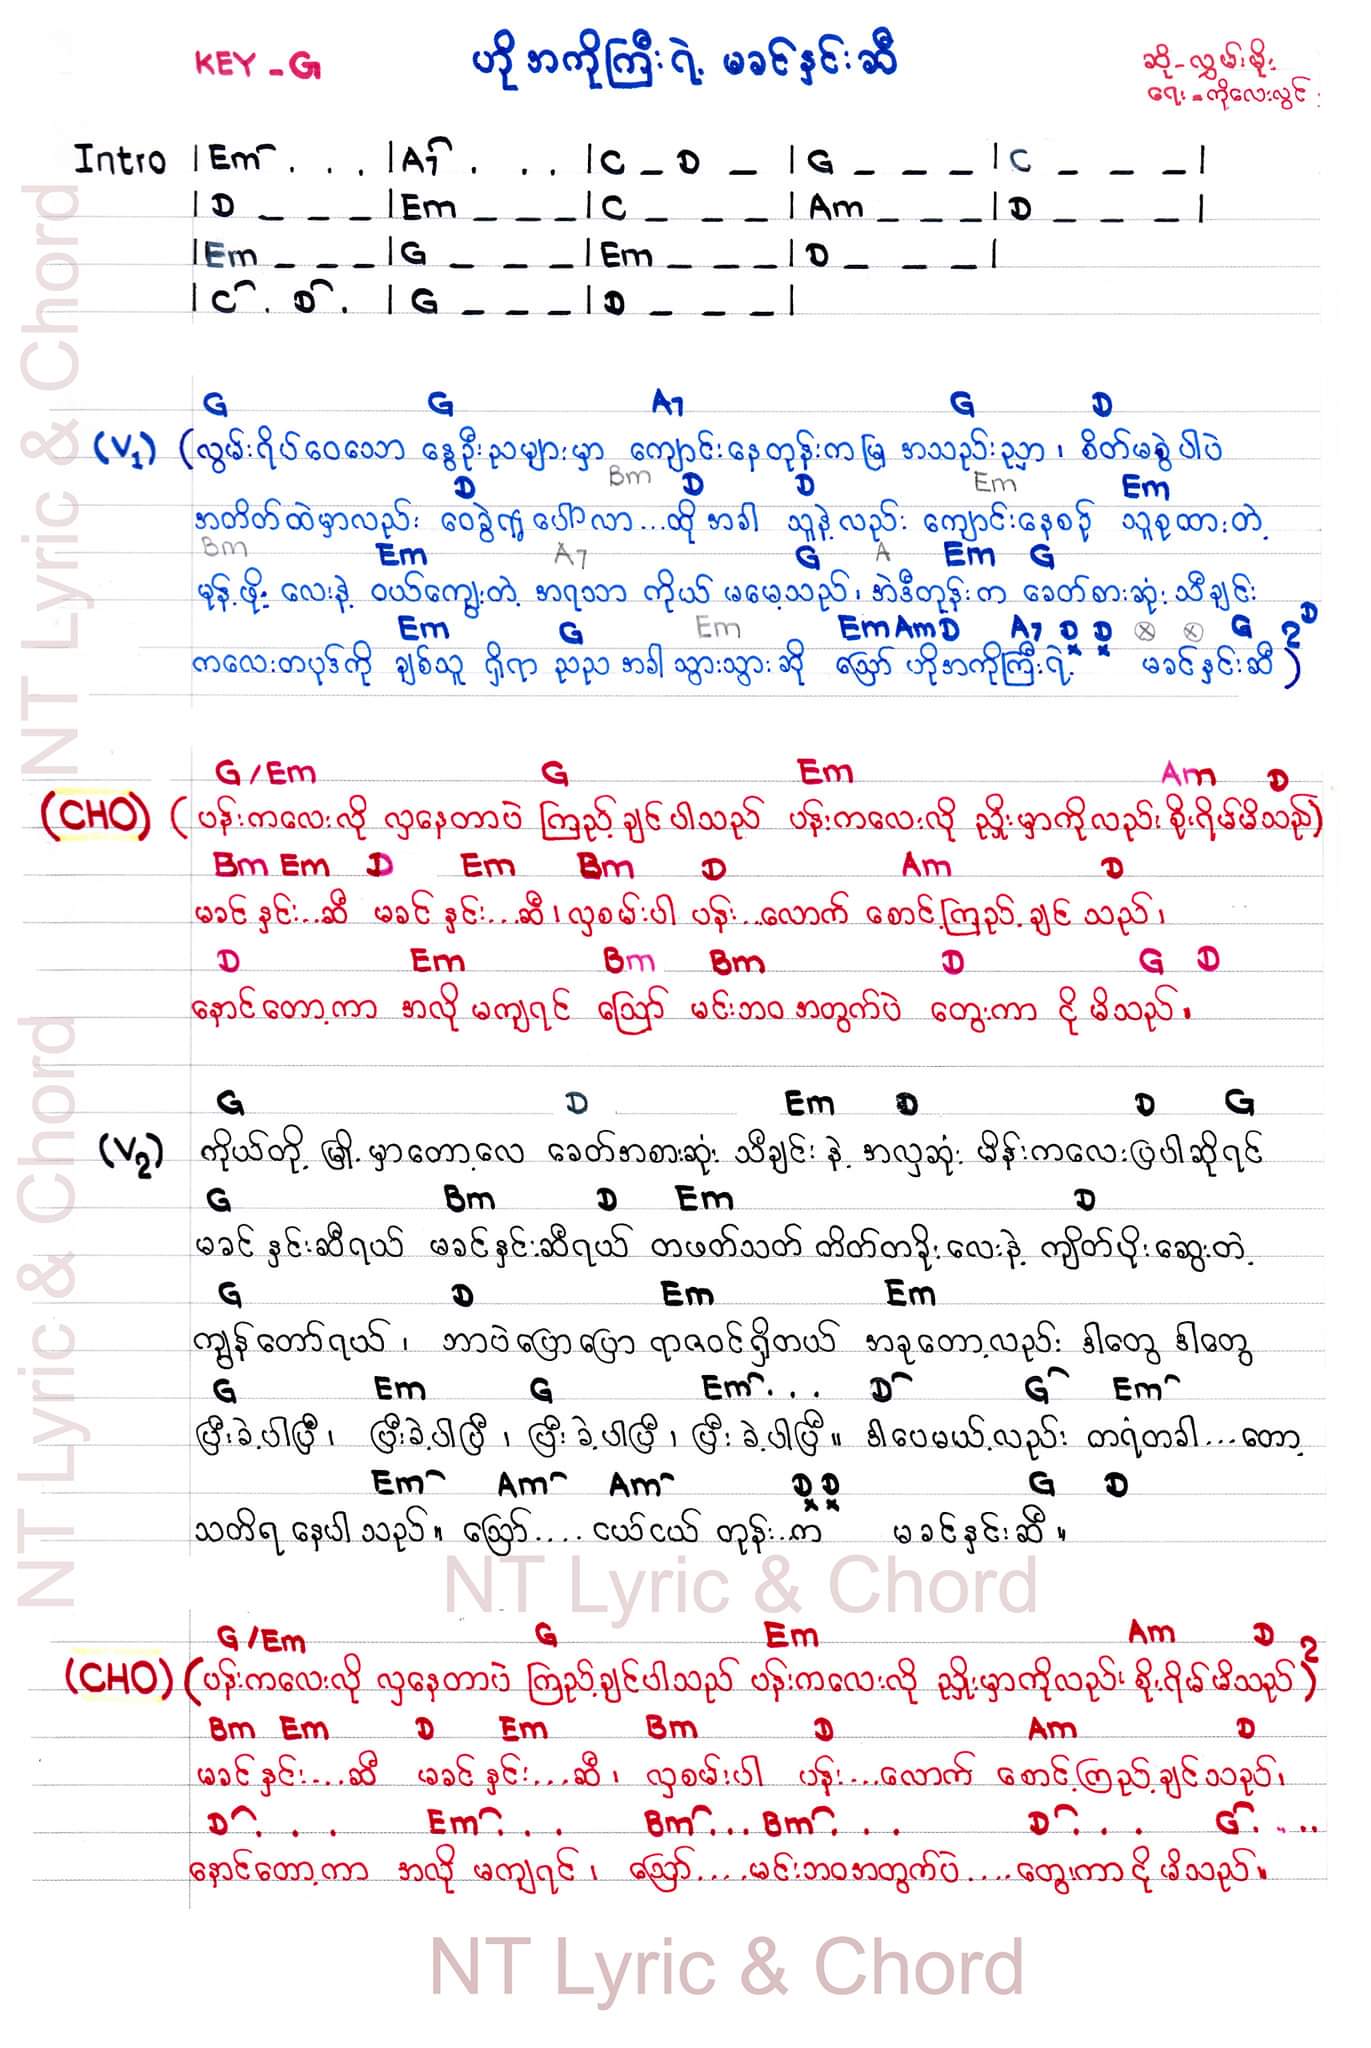 KEY - G
ဟိုအကိုကြီးရဲ့ မခင်နှင်းဆီ
ဆို - လွှမ်းမိုး
ရေး - ကိုလေးလွင်
Intro | Em . . . | A7 . . . | C _ D _ | G _ _ _ | C _ _ _ |
| D _ _ _ | Em _ _ _ | C _ _ _ | Am _ _ _ | D _ _ _ |
| Em _ _ _ | G _ _ _ | Em _ _ _ | D _ _ _ |
| C . D . | G _ _ _ | D _ _ _ |
G G A7 G D
(V1) (လွမ်းရိပ်ဝေသော နွေဦးညများမှာ ကျောင်းနေတုန်းကမြို့ အသည်းညှာ ၊ စိတ်မစွဲပါပဲ
D Bm D D Em Em
အတိတ်ထဲမှာလည်း ဝေခွဲ၍ ပေါ်လာ...ထိုအခါ သူနဲ့လည်း ကျောင်းနေစဉ် သူစုထားတဲ့
Bm Em A7 G A Em G
မုန့်ဖိုး လေးနဲ့ ဝယ်ကျွေးတဲ့ အရသာ ကိုယ် မမေ့သည်၊ အဲဒီတုန်းက ခေတ်စားဆုံး သီချင်း
Em G Em Em Am D A7 D D ⊗ ⊗ G D
ကလေးတပုဒ်ကို ချစ်သူ ရှိရာ ညည အခါ သွားသွားဆို သြော် ဟိုအကိုကြီးရဲ့ မခင်နှင်းဆီ)2
G/Em G Em Am D
(CHO) (ပန်းကလေးလို လှနေတာပဲ ကြည့်ချင်ပါသည် ပန်းကလေးလို ညှိုးမှာကိုလည်း စိုးရိမ်မိသည်)
Bm Em D Em Bm D Am D
မခင်နှင်း...ဆီ မခင်နှင်း...ဆီ၊ လှစမ်းပါ ပန်း...လောက် စောင့်ကြည့်ချင်သည်၊
D Em Bm Bm D G D
နောင်တော့ကာ အလိုမကျရင် သြော် မင်းဘဝအတွက်ပဲ တွေးကာ ငိုမိသည်။
G D Em D D G
(V2) ကိုယ်တို့ မြို့မှာတော့လေ ခေတ်အစားဆုံး သီချင်းနဲ့ အလှဆုံး မိန်းကလေးပြပါဆိုရင်
G Bm D Em D
မခင်နှင်းဆီရယ် မခင်နှင်းဆီရယ် တဖတ်သတ် တိတ်တခိုးလေးနဲ့ ကျိတ်ပိုးဆွေးတဲ့
G D Em Em
ကျွန်တော်ရယ် ၊ ဘာပဲပြောပြော ရာဇဝင်ရှိတယ် အခုတော့လည်း ဒါတွေ ဒါတွေ
G Em G Em . . . D G Em
ပြီးခဲ့ပါပြီ၊ ပြီးခဲ့ပါပြီ၊ ပြီးခဲ့ပါပြီ၊ ပြီးခဲ့ပါပြီ။ ဒါပေမယ့်လည်း တရံတခါ...တော့
Em Am Am D D G D
သတိရနေပါသည်။ သြော်.... ငယ်ငယ်တုန်း..က မခင်နှင်းဆီ။
G/Em G Em Am D
(CHO) (ပန်းကလေးလို လှနေတာပဲ ကြည့်ချင်ပါသည် ပန်းကလေးလို ညှိုးမှာကိုလည်း စိုးရိမ်မိသည်)2
Bm Em D Em Bm D Am D
မခင်နှင်း...ဆီ မခင်နှင်း...ဆီ၊ လှစမ်းပါ ပန်း...လောက် စောင့်ကြည့်ချင်သည်၊
D . . . Em . . . Bm . . . Bm . . . D . . . G . . . .
နောင်တော့ကာ အလိုမကျရင် ၊ သြော်....မင်းဘဝအတွက်ပဲ....တွေးကာ ငိုမိသည်။
NT Lyric & Chord
NT Lyric & Chord
NT Lyric & Chord
NT Lyric & Chord